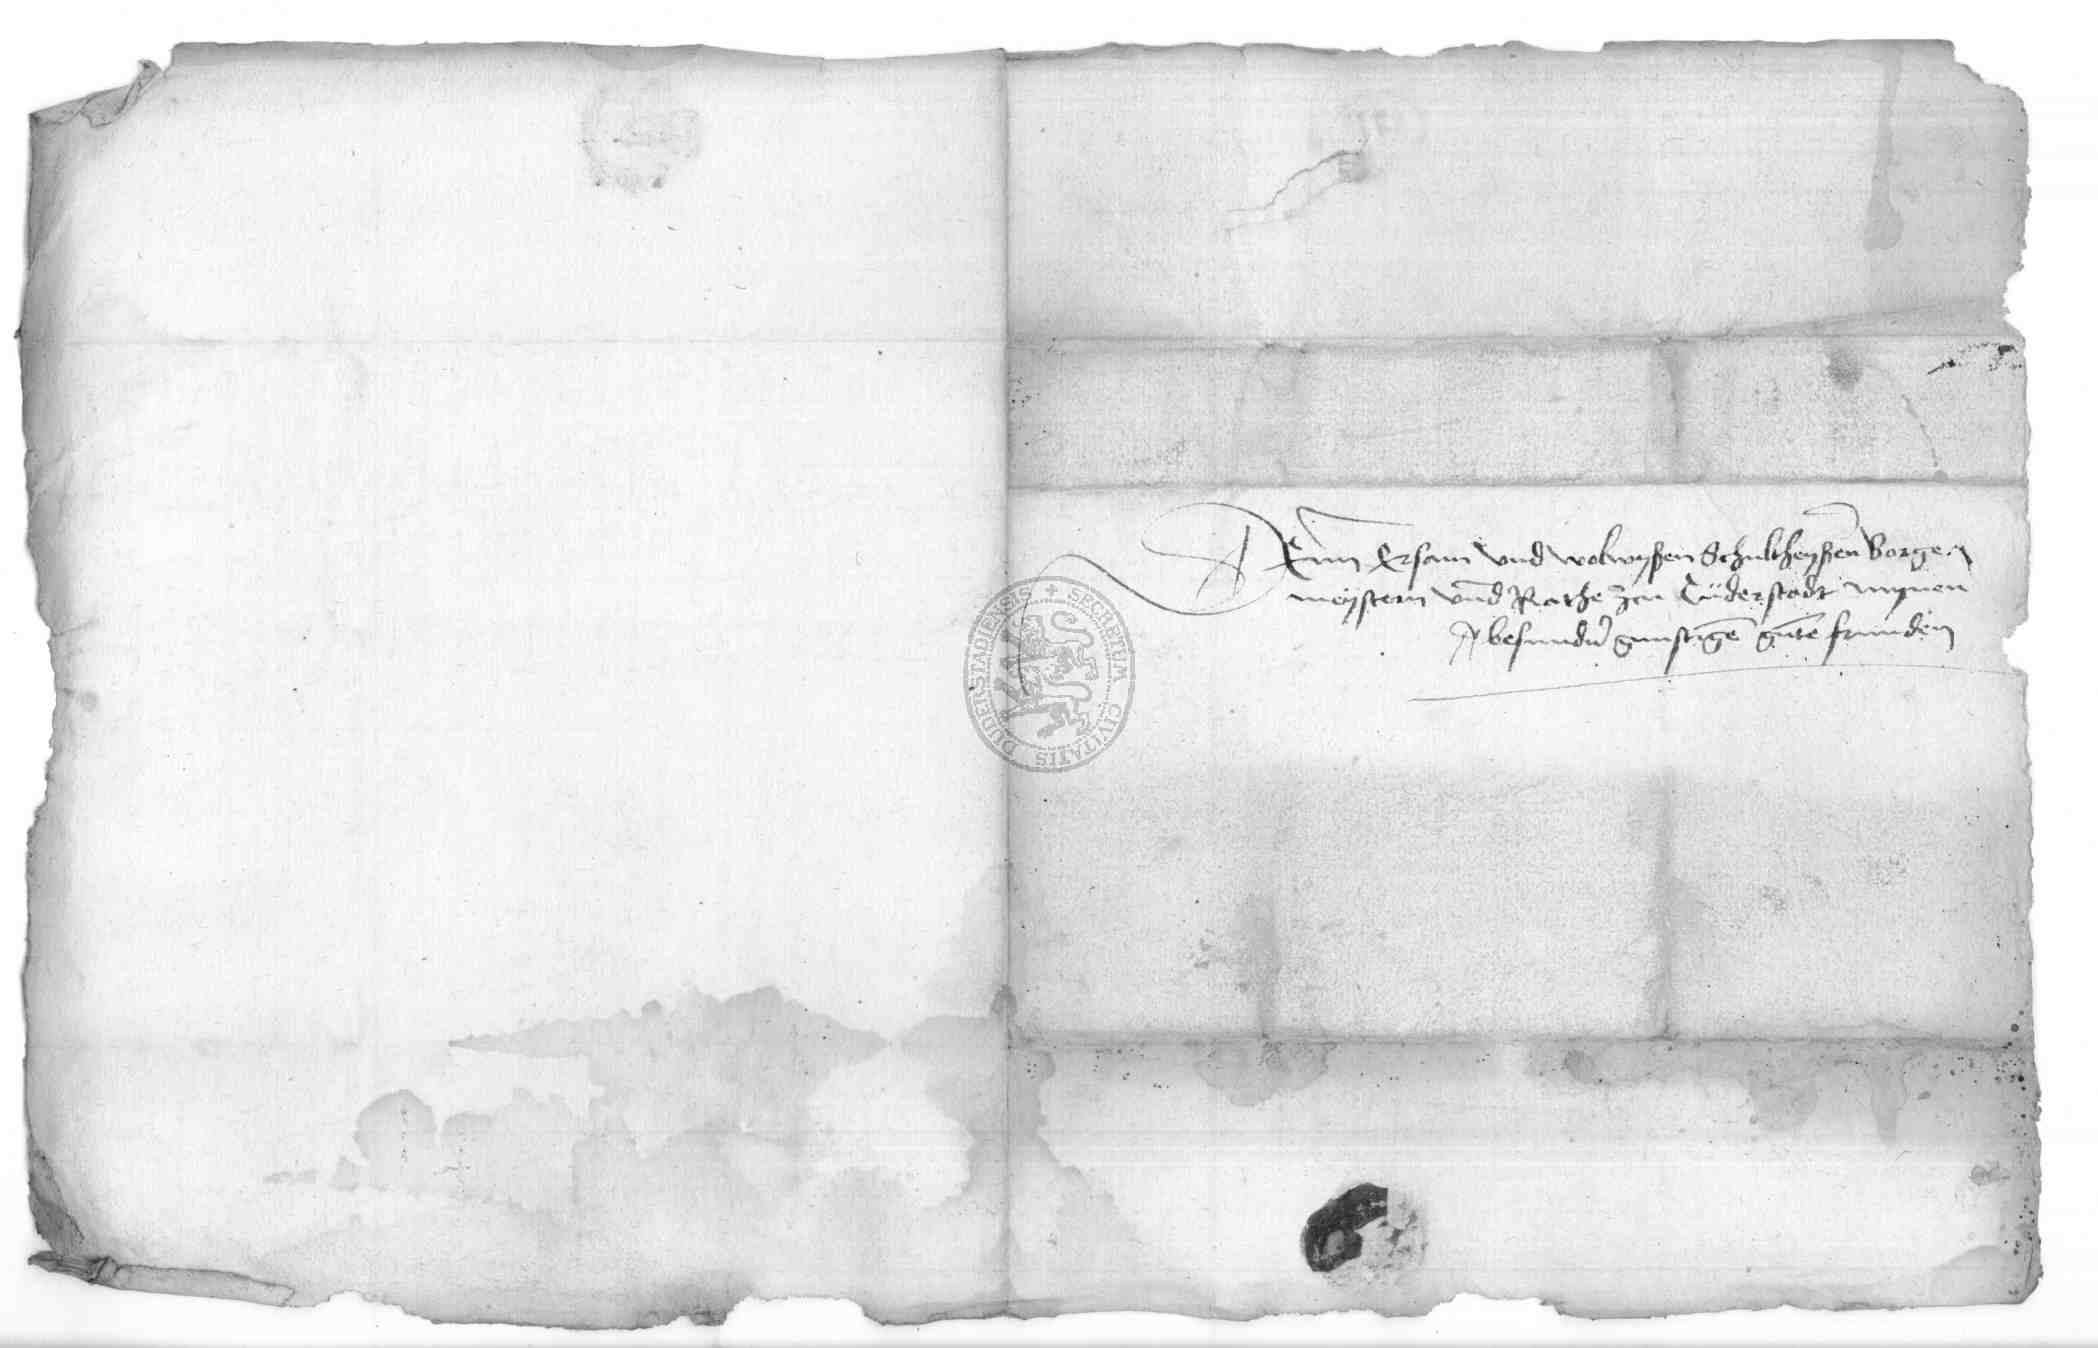 Denn Ersam vnd wolwyßen Schultheyßen Borge-
meystern vnnd Rathe zcu Duderstadt mynen
besundern gunstigen guten frunden
SECRETUM CIVITATIS DUDERSTADIENSIS